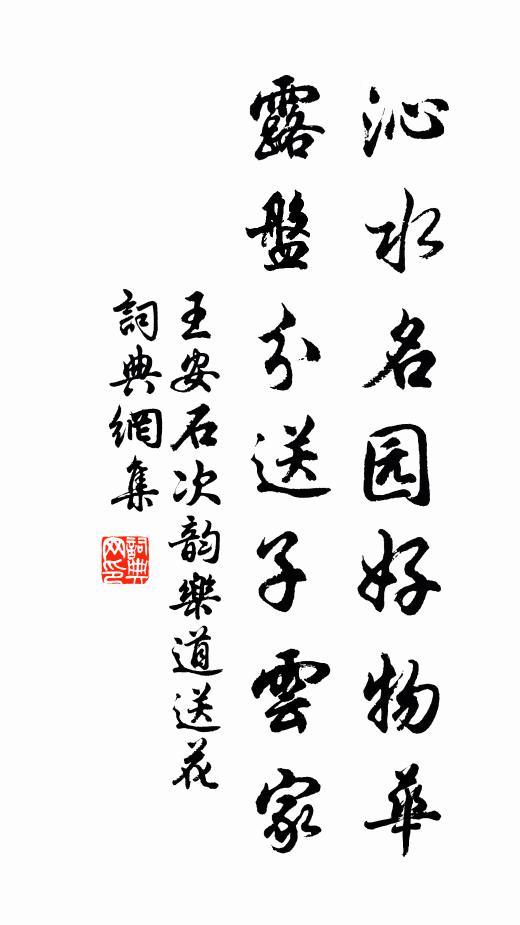 沁水名园好物華
露盤分送子雲家
王安石次韵樂道送花
詞典網集
詞典网印